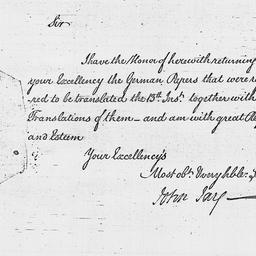 Sir
I have the Honor of herewith returning
your Excellency the German Papers that were re
red to be translated the 13th Inst. together with
Translations of them – and am with great Re
and Esteem
Your Excellency's
Most obt. & very hble. S
John Jay